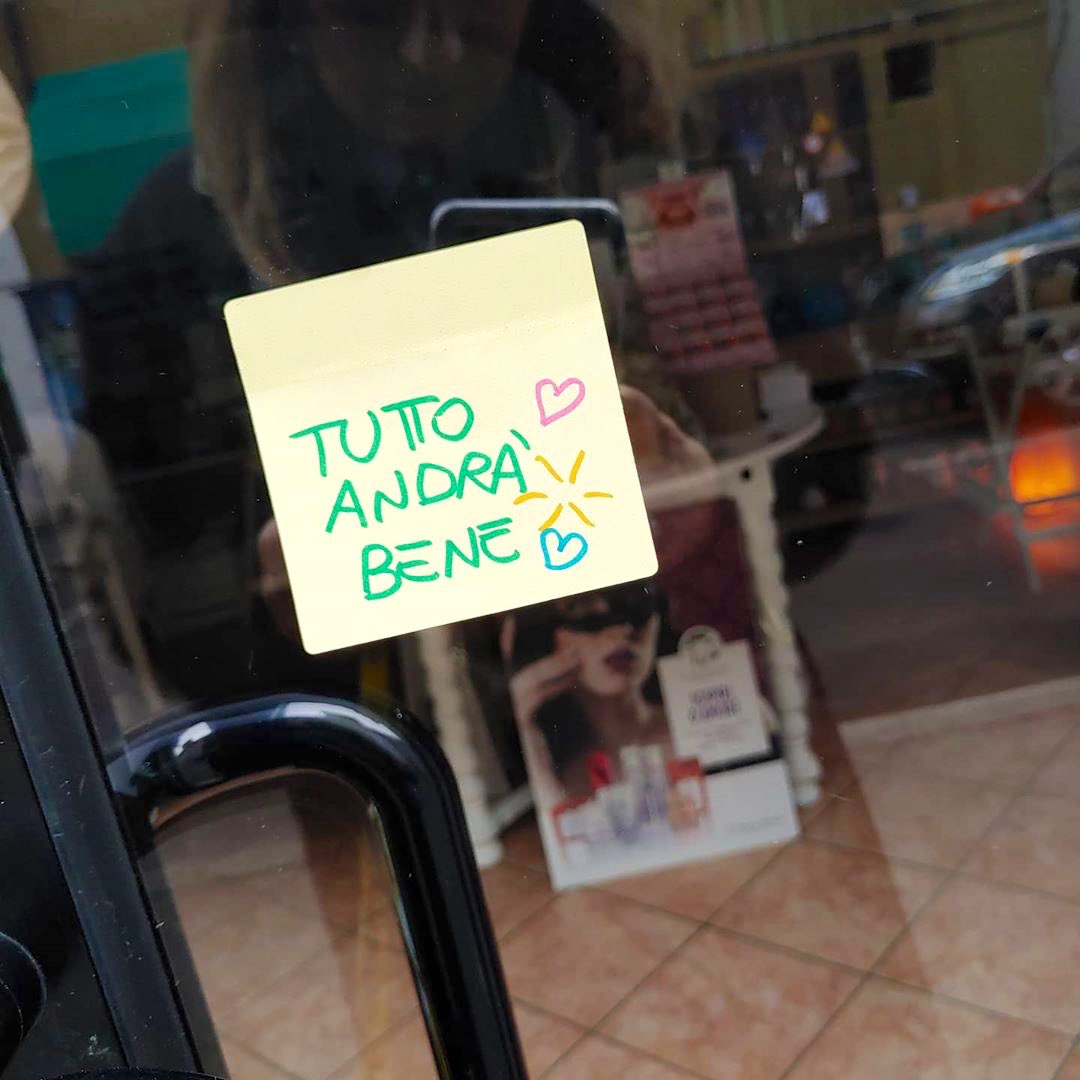 TUTTO
ANDRA'
BENE